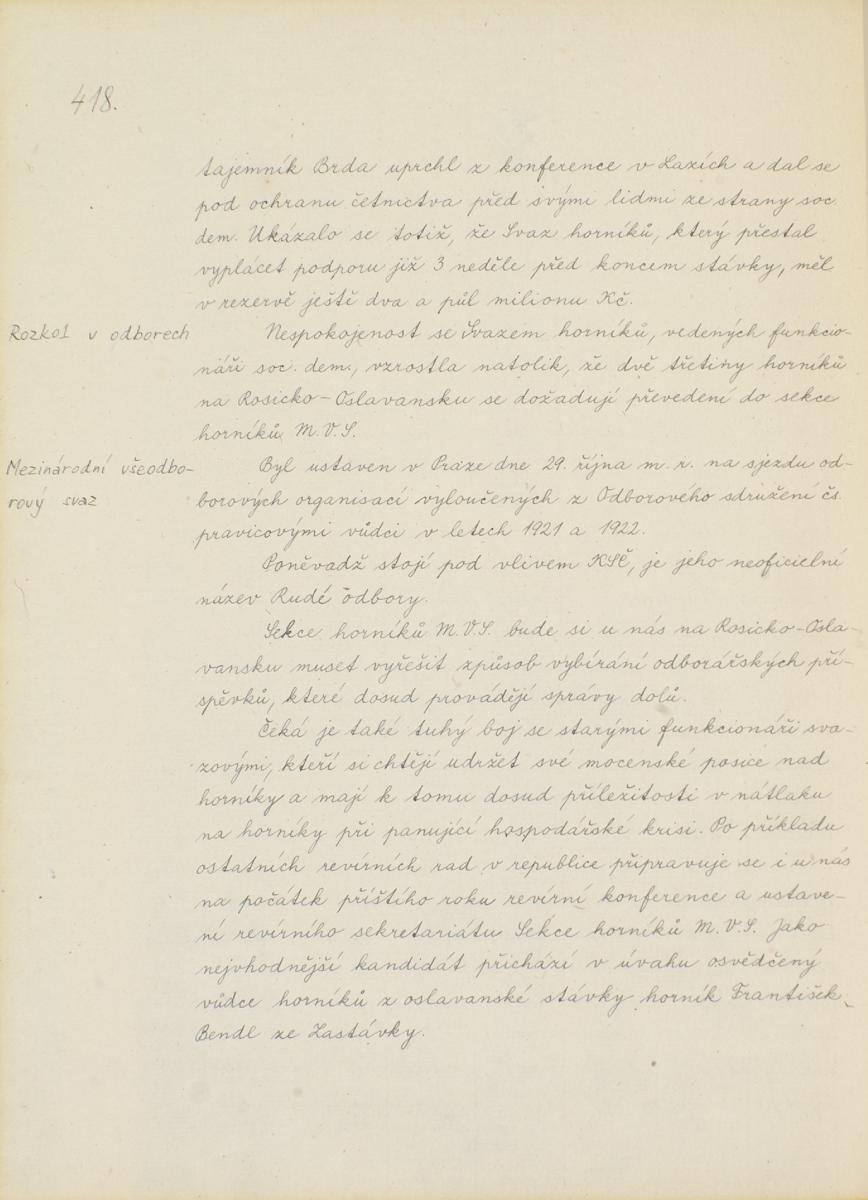 418.
tajemník Brda uprchl z konference v Lazích a dal se
pod ochranu četnictva před svými lidmi ze strany soc.
dem. Ukázalo se totiž, že Svaz horníků, který přestal
vyplácet podporu již 3 neděle před koncem stávky, měl
v rezervě ještě dva a půl milionu Kč.
Rozkol v odborech
Nespokojenost se Svazem horníků, vedených funkcio-
náři soc. dem., vzrostla natolik, že dvě třetiny horníků
na Rosicko-Oslavansku se dožadují převedení do sekce
horníků M.V.S.
Mezinárodní všeodbo-
rový svaz
Byl ustaven v Praze dne 29. října m. r. na sjezdu od-
borových organisací vyloučených z Odborového sdružení čs.
pravicovými vůdci v letech 1921 a 1922.
Poněvadž stojí pod vlivem KSČ, je jeho neoficielní
název Rudé odbory.
Sekce horníků M.V.S. bude si u nás na Rosicko-Osla-
vansku muset vyřešit způsob vybírání odborářských pří-
spěvků, které dosud provádějí správy dolů.
Čeká je také tuhý boj se starými funkcionáři sva-
zovými, kteří si chtějí udržet své mocenské posice nad
horníky a mají k tomu dosud příležitosti v nátlaku
na horníky při panující hospodářské krisi. Po příkladu
ostatních revírních rad v republice připravuje se i u nás
na počátek příštího roku revírní konference a ustave-
ní revírního sekretariátu Sekce horníků M.V.S. Jako
nejvhodnější kandidát přichází v úvahu osvědčený
vůdce horníků z oslavanské stávky horník František
Bendl ze Zastávky.